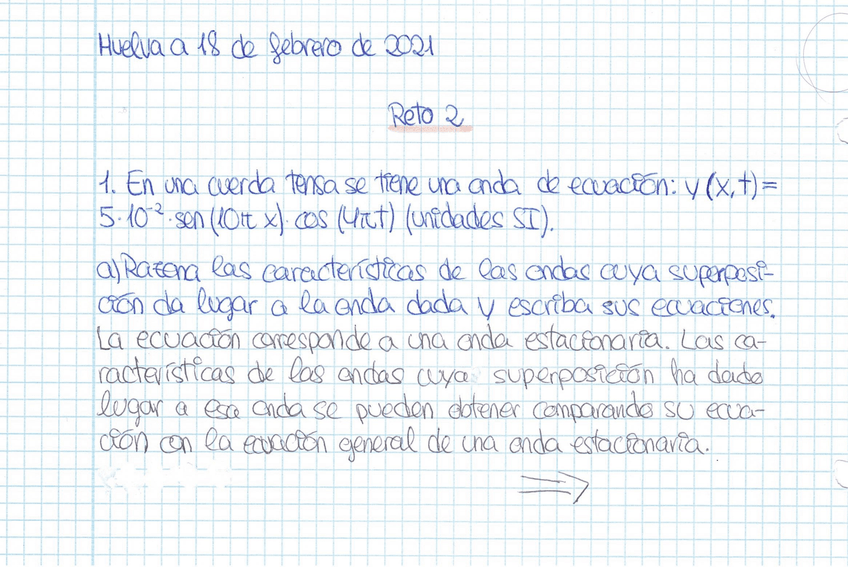 Huelva a 18 de febrero de 2021
Reto 2
1. En una cuerda tensa se tiene una onda de ecuación: y (x, t) =
5·10⁻²·sen (10π x)· cos (4πt) (unidades SI).
a) Razona las características de las ondas cuya superposi-
ción da lugar a la onda dada y escriba sus ecuaciones.
La ecuación corresponde a una onda estacionaria. Las ca-
racterísticas de las ondas cuya superposición ha dado
lugar a esa onda se pueden obtener comparando su ecua-
ción con la ecuación general de una onda estacionaria.